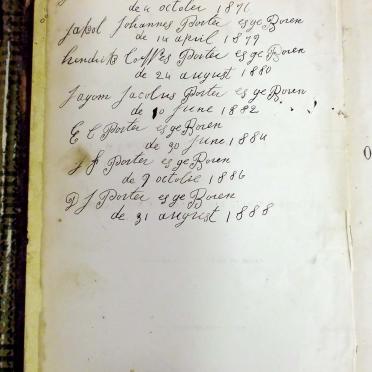 de 4 october 1876
Jakobl Johannes Porter es ge Boren
de 14 april 1879
hindrik Porter es ge Boren
de 24 august 1880
Jacobus Porter es ge Boren
de 10 June 1882
E C Porter es ge Boren
de 30 June 1884
Porter es ge Boren
de 9 octobe 1886
D J Porter es ge Boren
de 31 august 1888
O